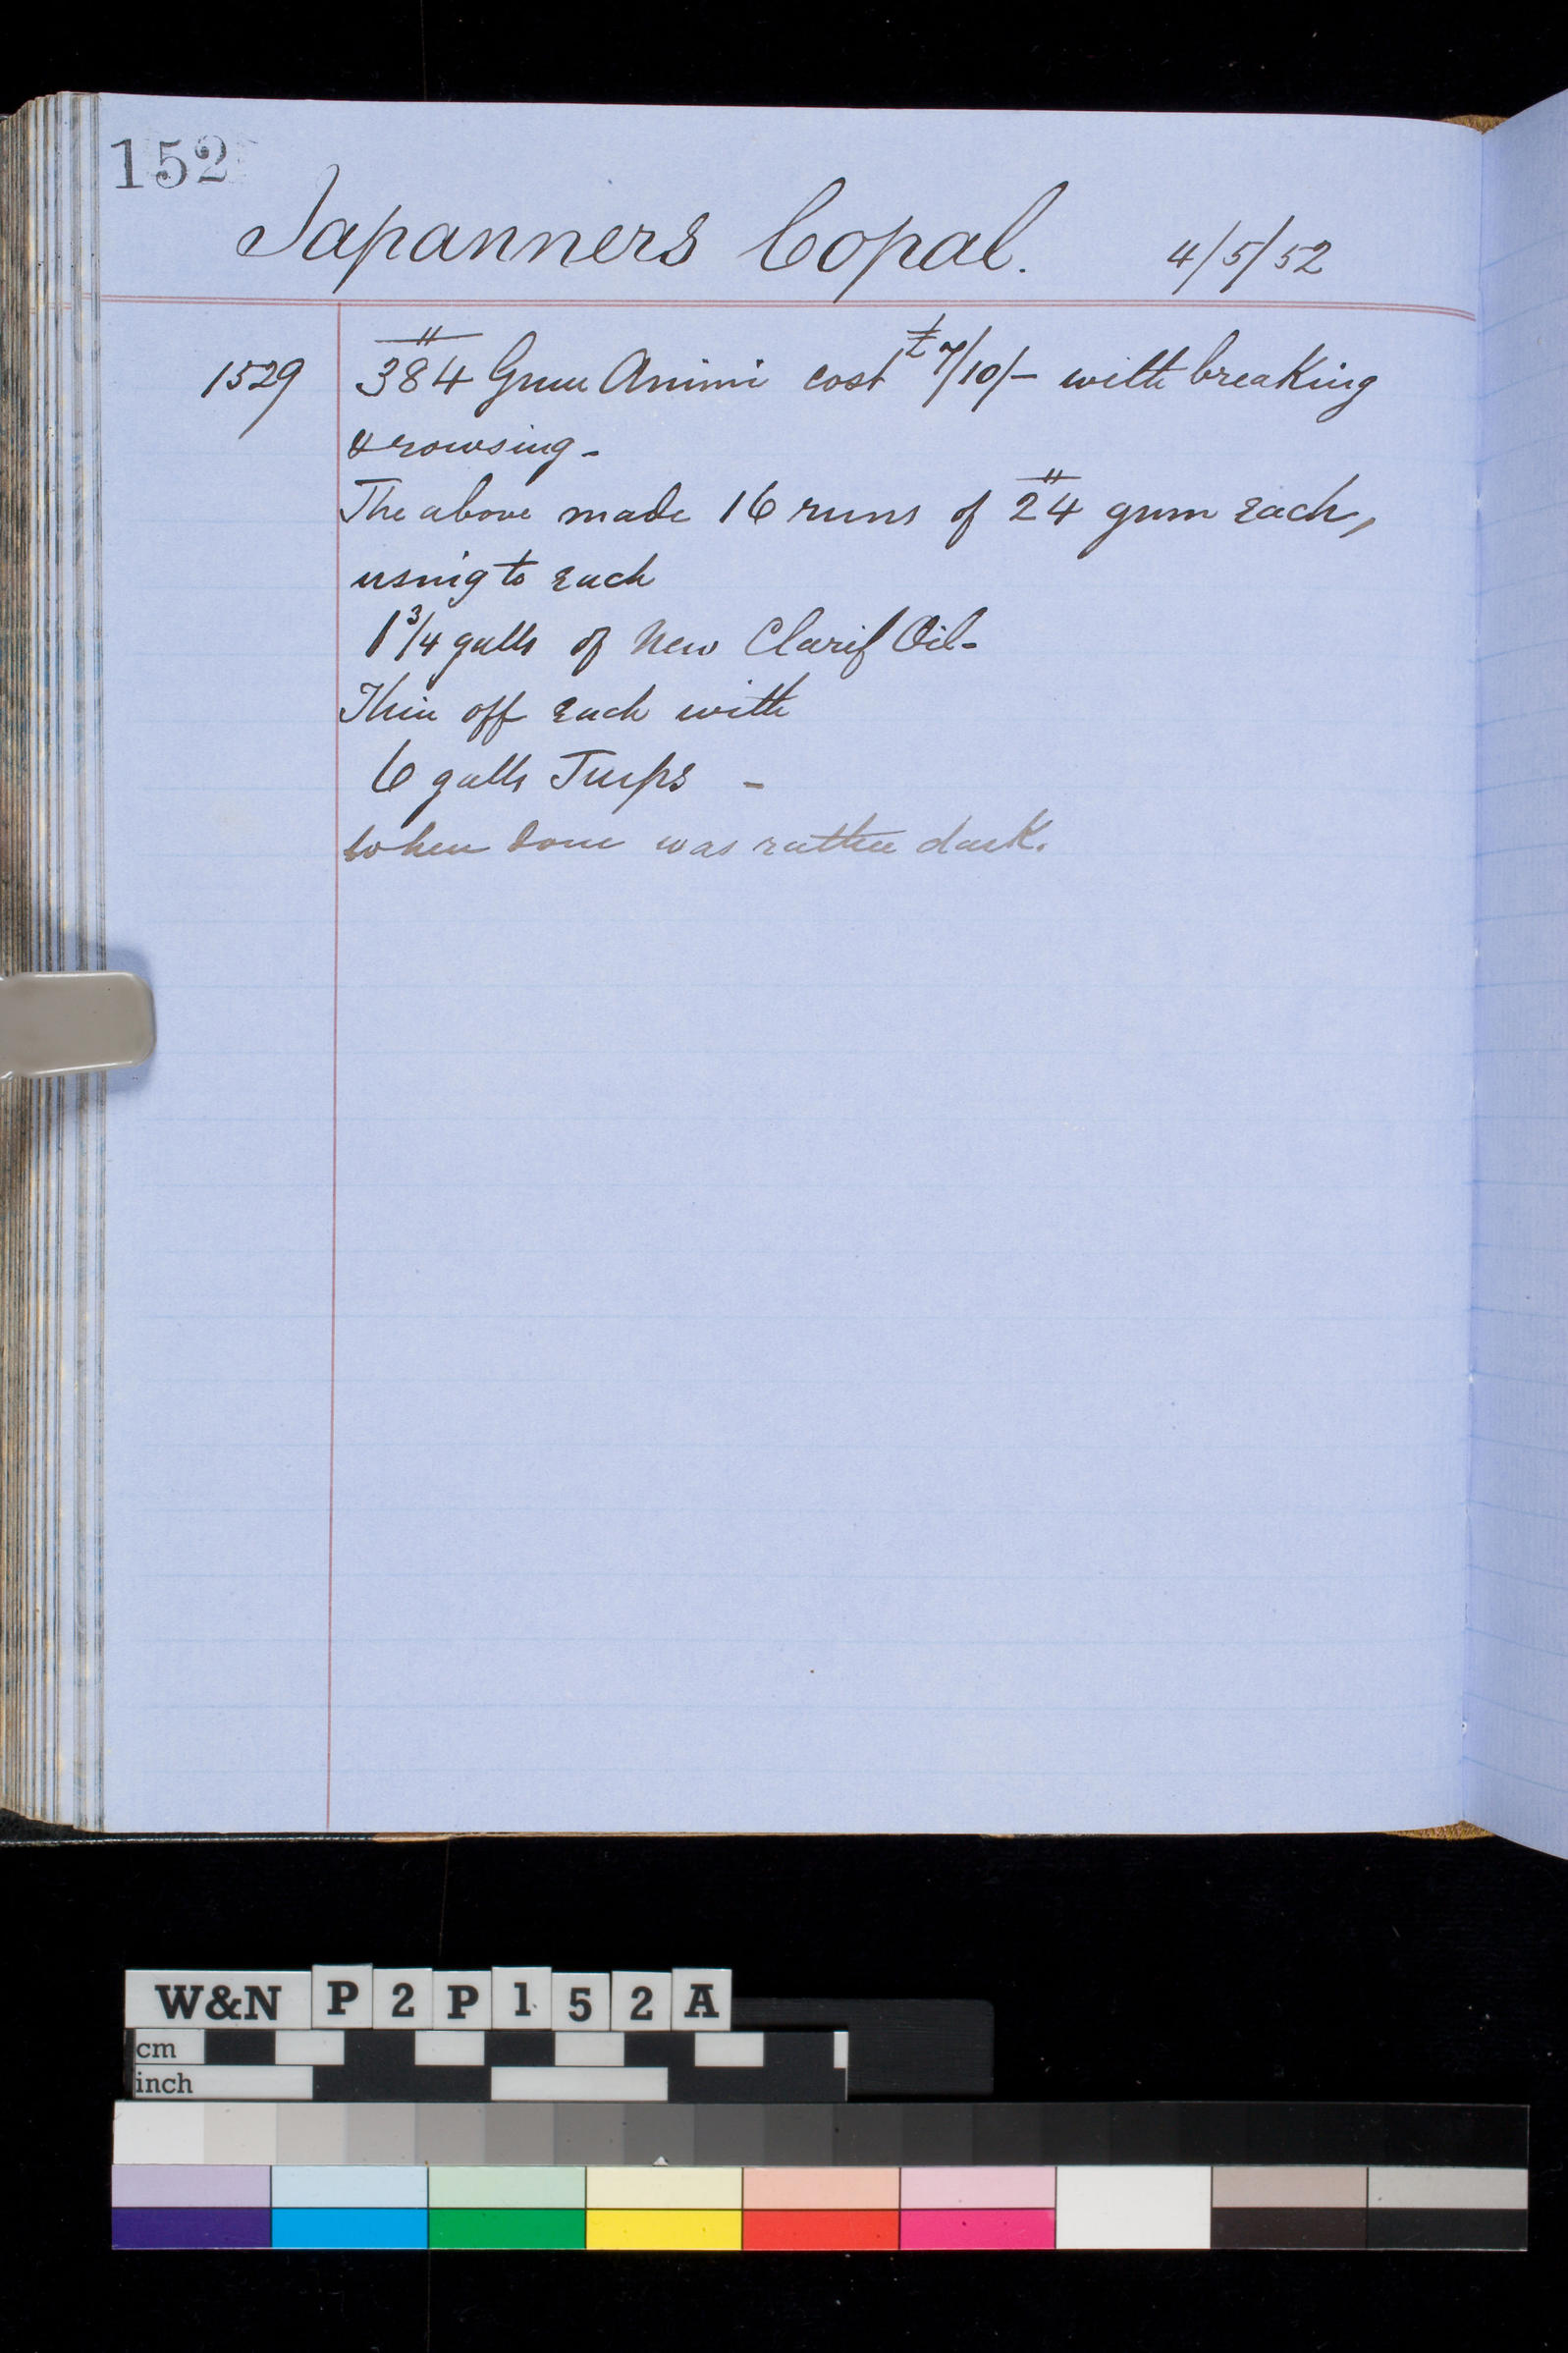 152
Japanners Copal. 4/5/52
1529 384 Gum Animi cost £7/10/- with breaking
& rowsing -
The above made 16 runs of 24 gum each,
using to each
1 3/4 galls of New Clarif Oil -
Thin off each with
6 galls Turps -
When done was rather dark.
W&N P2P152A
cm
inch